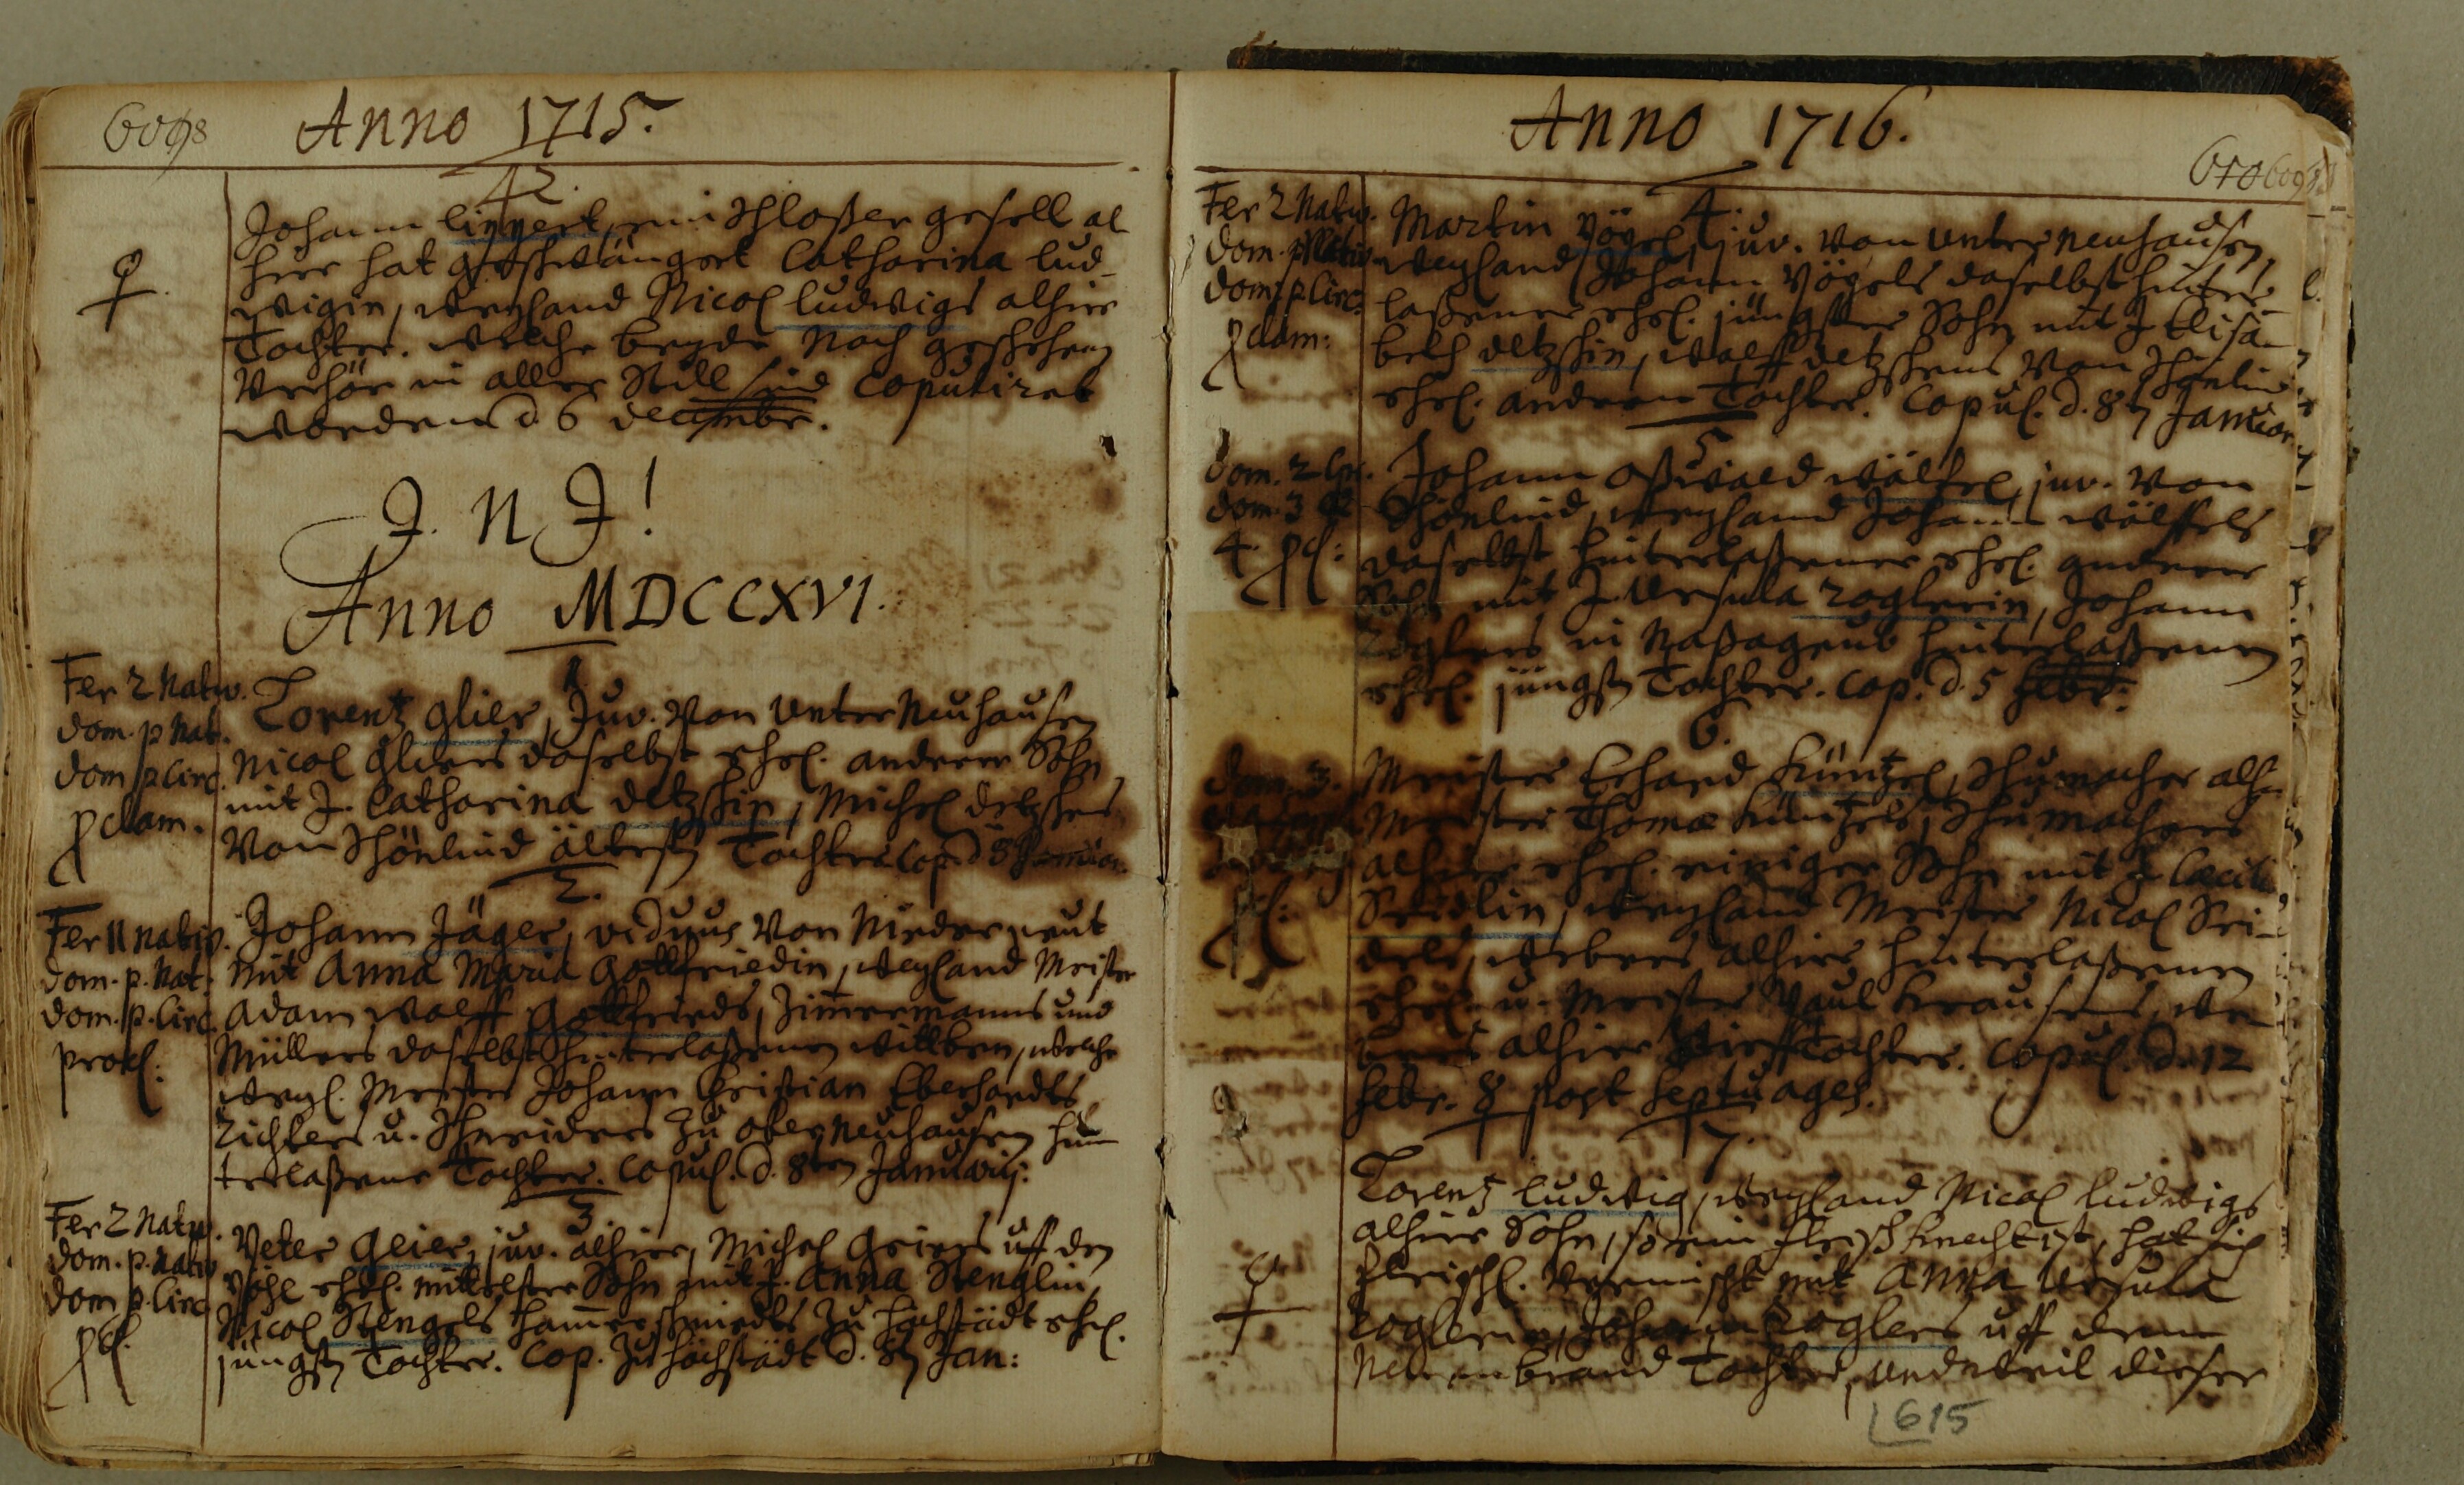 6098
Anno 1715.
42.
Johann Lippert, ein Schloßer gesell al
hier hat geschwängert Catharina Lud-
wigin, weyland Nicol Ludwigs alhier
Tochter. welche beyde nach geschehenen
Verhör in aller Still sind copuliret
worden d. 6 decembr.
J. N. J!
Anno MDCCXVI.
1.
Fer 2 Nativ.
dom. p Nat.
dom p Circ.
pclam.
Lorentz Glier, Juv. von Unter Neuhausen
Nicol Gliers daselbst ehel. anderer Sohn
mit J. Catharina Detzschin, Michel Detzschens
von Schönlind ältesten Tochter cop. d 8 Januar.
2.
Fer II Nativ.
dom. p. Nat.
dom. p. Circ.
procl:
Johann Jäger, viduus von Niederreut
mit Anna Maria Gottfriedin, weyland Meister
Adam Wolff Gottfrieds, Zimmermanns und
Müllers daselbst hinterlaßenen wittben, welche
weyl. Meister Johann Christian Eberhardts
Richters u. Schneiders zu Ober Neuhausen hin
terlaßene Tochter. Copul. d. 8ten Januarij:
3.
Fer 2 Nativ.
dom. p. Nativ
dom p. Circ
pcl.
Peter Geier, juv. alhier, Michel Geiers uff den
ehel. mittelster Sohn mit J. Anna Stenglin,
Nicol Stengels Hammerschmiedts zu Höchstädt ehel.
jüngsten Tochter. Cop. zu Höchstädt d. 8ten Jan:
Anno 1716.
610 609
4.
Fer 2 Nativ.
dom. p Nativ
dom. p Circ.
pclam:
Martin Vögel, juv. von Unter Neuhausen,
weyland Johann Vögels daselbst hinter-
laßener ehel. jüngster Sohn mit J Elisa-
beth Detzschin, Wolff Detzschens von Schönlind
ehel. andern Tochter. Copul. d. 8ten Januar.
5
dom. 2
dom. 3 &
4. pcl:
Johann Oßwald Wölfel, juv. von
Schönlind, weyland Johann Wölffels
daselbst hinterlaßener ehel. anderer
Sohn mit J. Ursula Zoglerin, Johann
Zoglers in hinterlaßenen
ehel. jüngsten Tochter. Cop. d. 5 Febr:
6.
dom. 3.
pcl:
Meister Erhard Küntzel, Schumacher alh.
Meister Thomæ Küntzels, Schumachers
alhier ehel. einiger Sohn mit J Cæcili
Seidlin, weyland Meister Nicol Sei-
dels, webers alhier hinterlaßenen
ehel. u. Meister Paul Krausens, we-
bers alhier Stieff Tochter. Copul. d. 12
Febr. post Septuages.
7.
Lorentz Ludwig, weyland Nicol Ludwigs
alhier Sohn, so ein Fleischknecht ist, hat sich
fleischl. vermischt mit Anna Ursula
Zoglerin, Johann Zoglers uff dem
Neuenbrand Tochter, und weil dieser
615